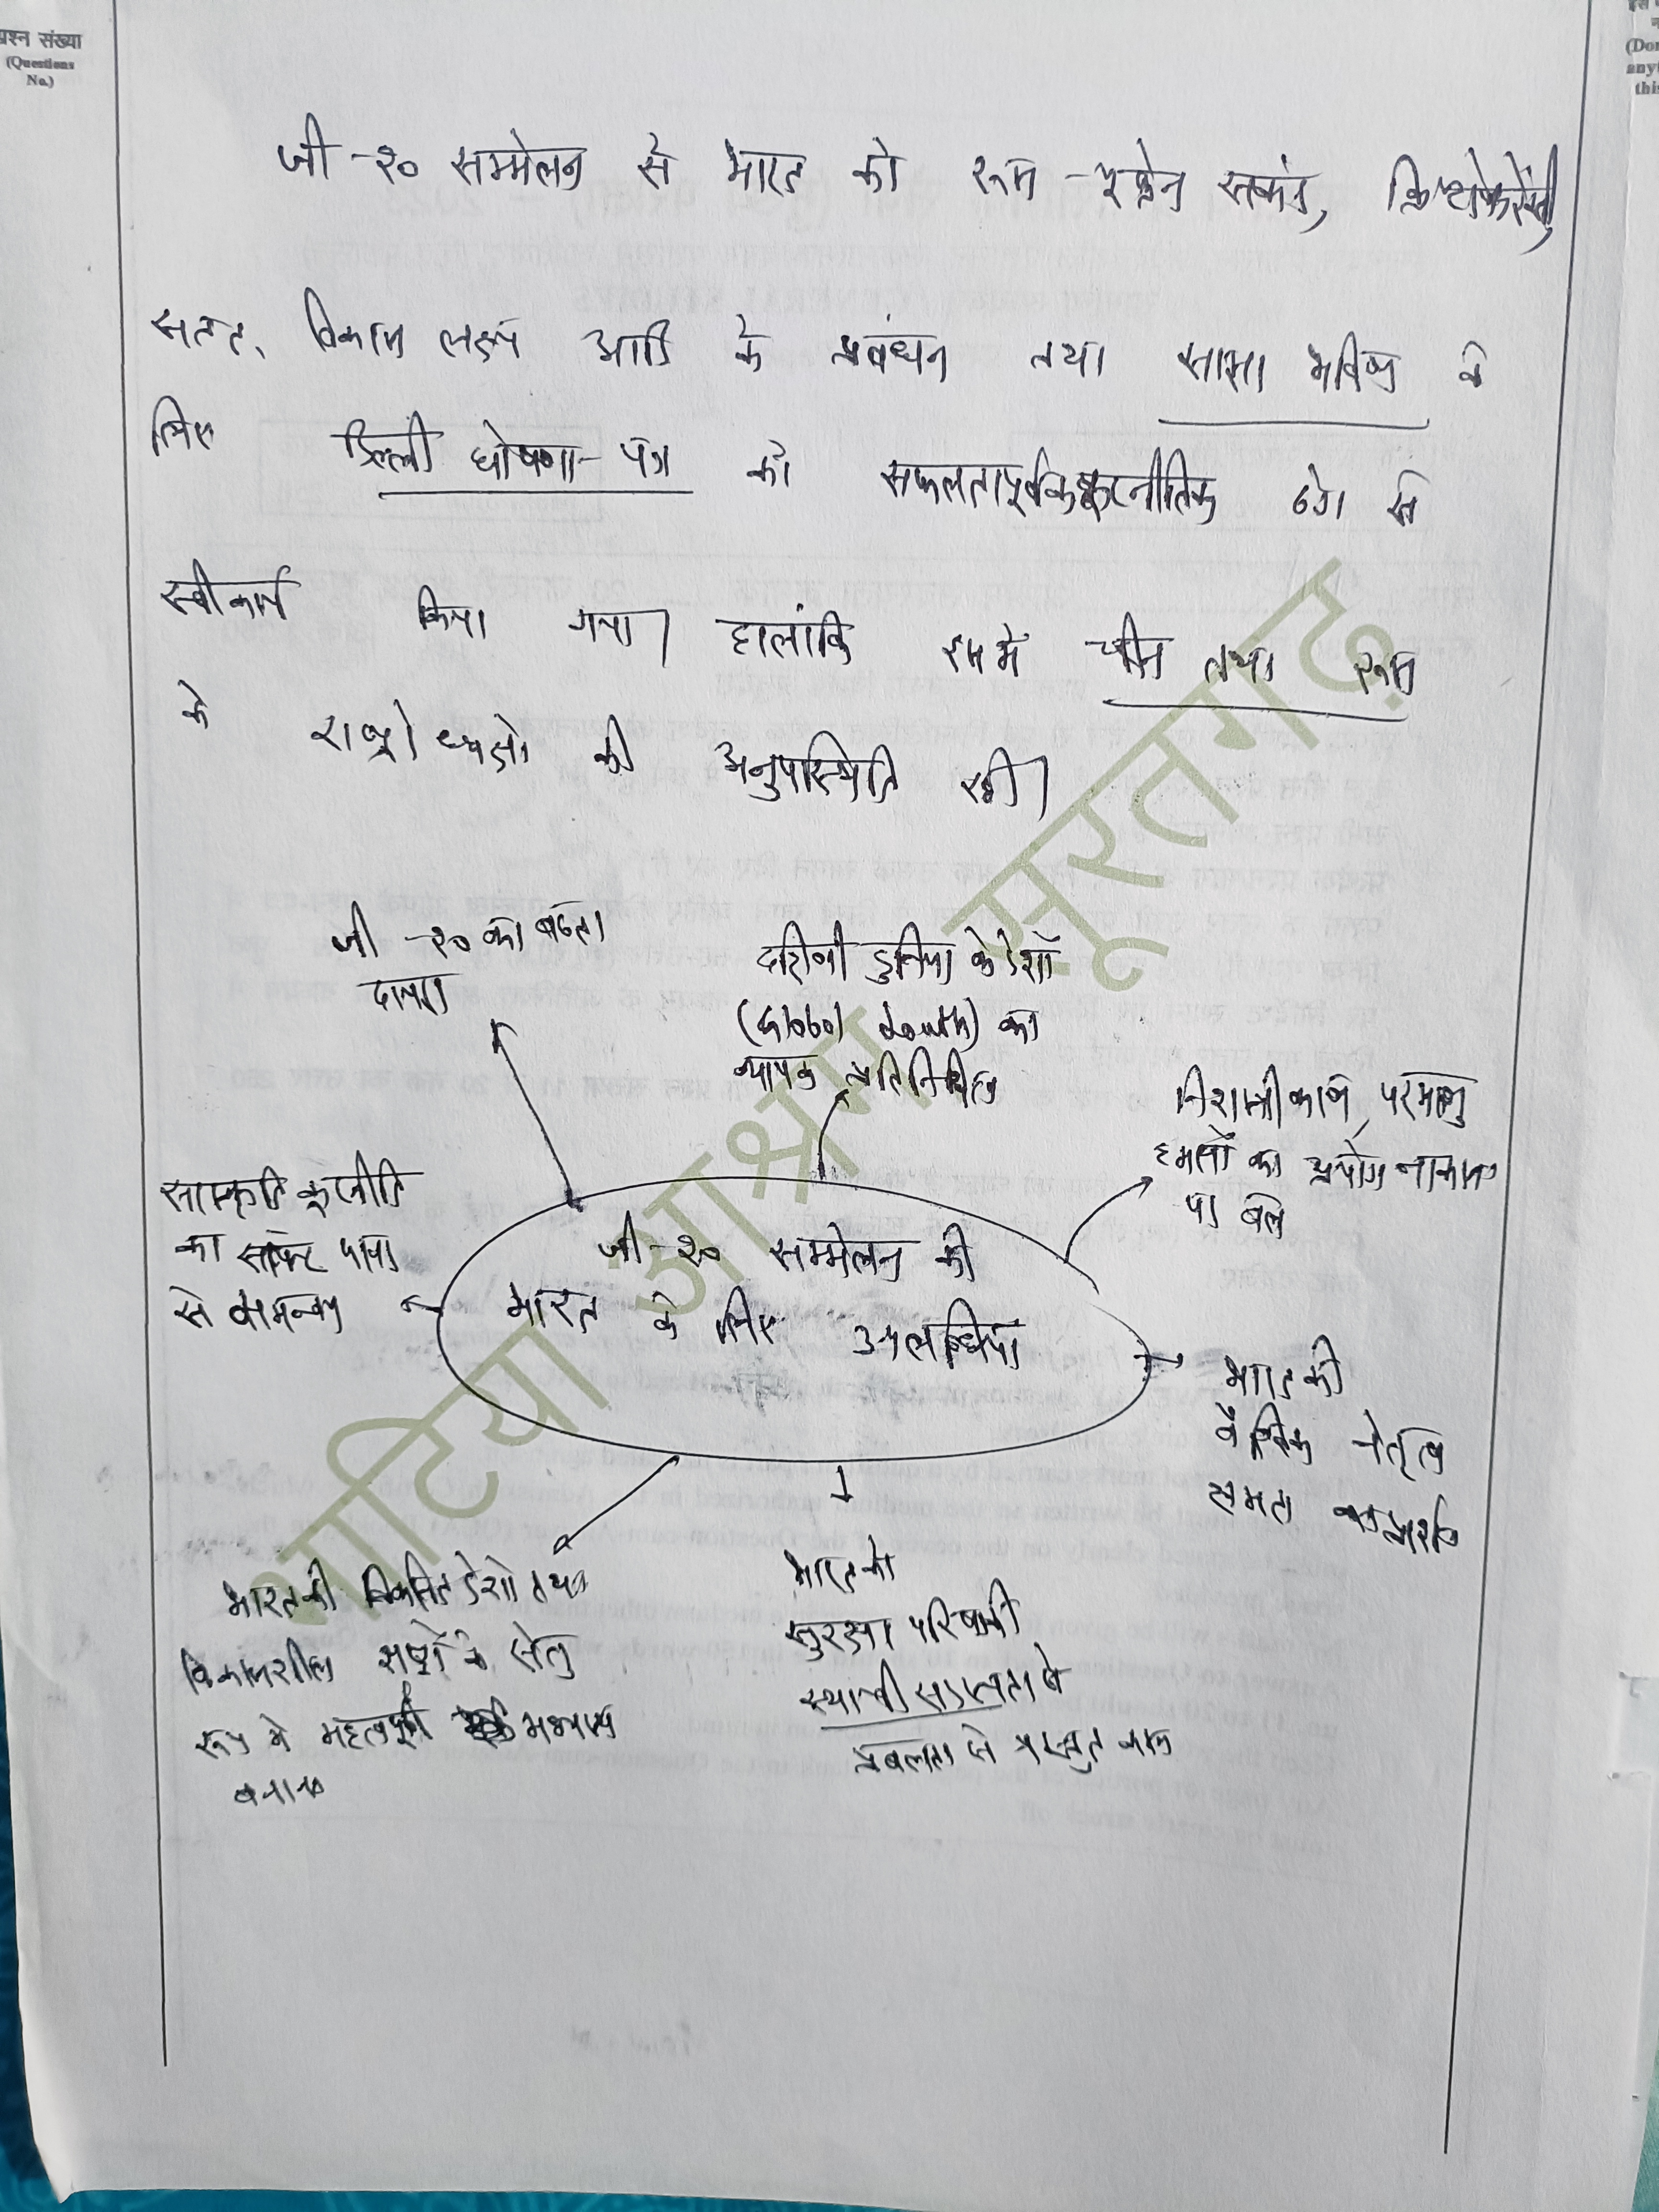 प्रश्न संख्या
(Questions
No.)
(Don
any
this
जी-२० सम्मेलन से भारत को रूस-यूक्रेन संकट, क्रिप्टोकरेंसी,
सतत् विकास लक्ष्य आदि के प्रबंधन तथा साझा भविष्य के
लिए दिल्ली घोषणा-पत्र को सफलतापूर्वक कूटनीतिक ढंग से
स्वीकार्य किया गया। हालांकि इसमें चीन तथा रूस
के राष्ट्राध्यक्षों की अनुपस्थिति रही।
जी-२० का बढ़ता
दायरा
दक्षिणी दुनिया के देशों
(Global South) का
व्यापक प्रतिनिधित्व
निशस्त्रीकरण, परमाणु
हमलों का प्रयोग न करने
पर बल
सांस्कृति कूटनीति
का सॉफ्ट पावर
से समन्वय
जी-२० सम्मेलन की
भारत के लिए उपलब्धियां
भारत की
वैश्विक नेतृत्व
क्षमता का प्रदर्शन
भारत की विकसित देशों तथा
विकासशील राष्ट्रों के सेतु
रूप में महत्वपूर्ण
बनाना
भारत को
सुरक्षा परिषद की
स्थायी सदस्यता के
प्रबलता से प्रस्तुत करना
भाटिया आश्रम सूरतगढ़